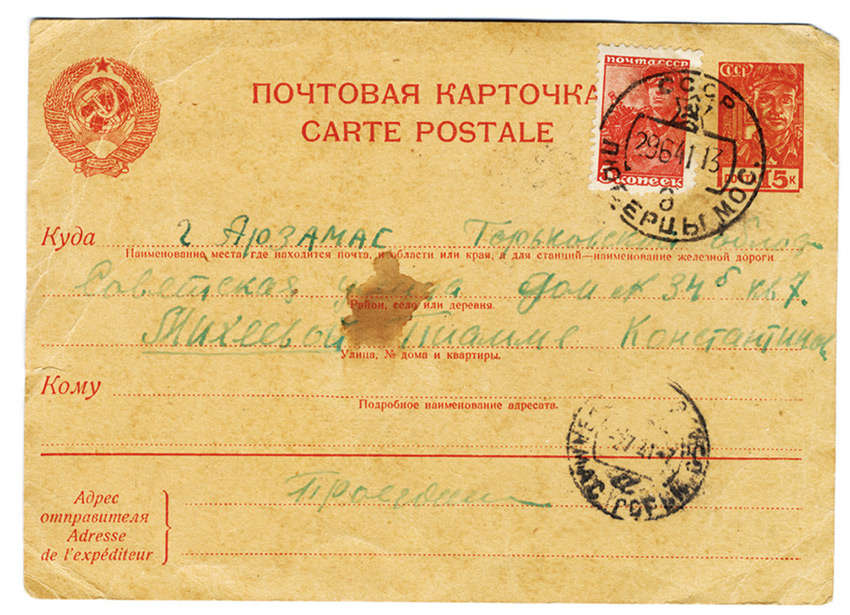 ПОЧТОВАЯ КАРТОЧКА
CARTE POSTALE
ПОЧТА СССР
5 копеек
СССР
ПОЧТА 15 К
СССР
29 6 41 13
ЛЮБЕРЦЫ МОС.
Куда г Арзамас Горьковской облас
Наименование места, где находится почта, и области или края, а для станций—наименование железной дороги
Советская улица дом № 34б кв 7.
Район, село или деревня.
Михеевой Константиновне
Улица, № дома и квартиры.
Кому
Подробное наименование адресата.
Адрес
отправителя
Adresse
de l'expéditeur